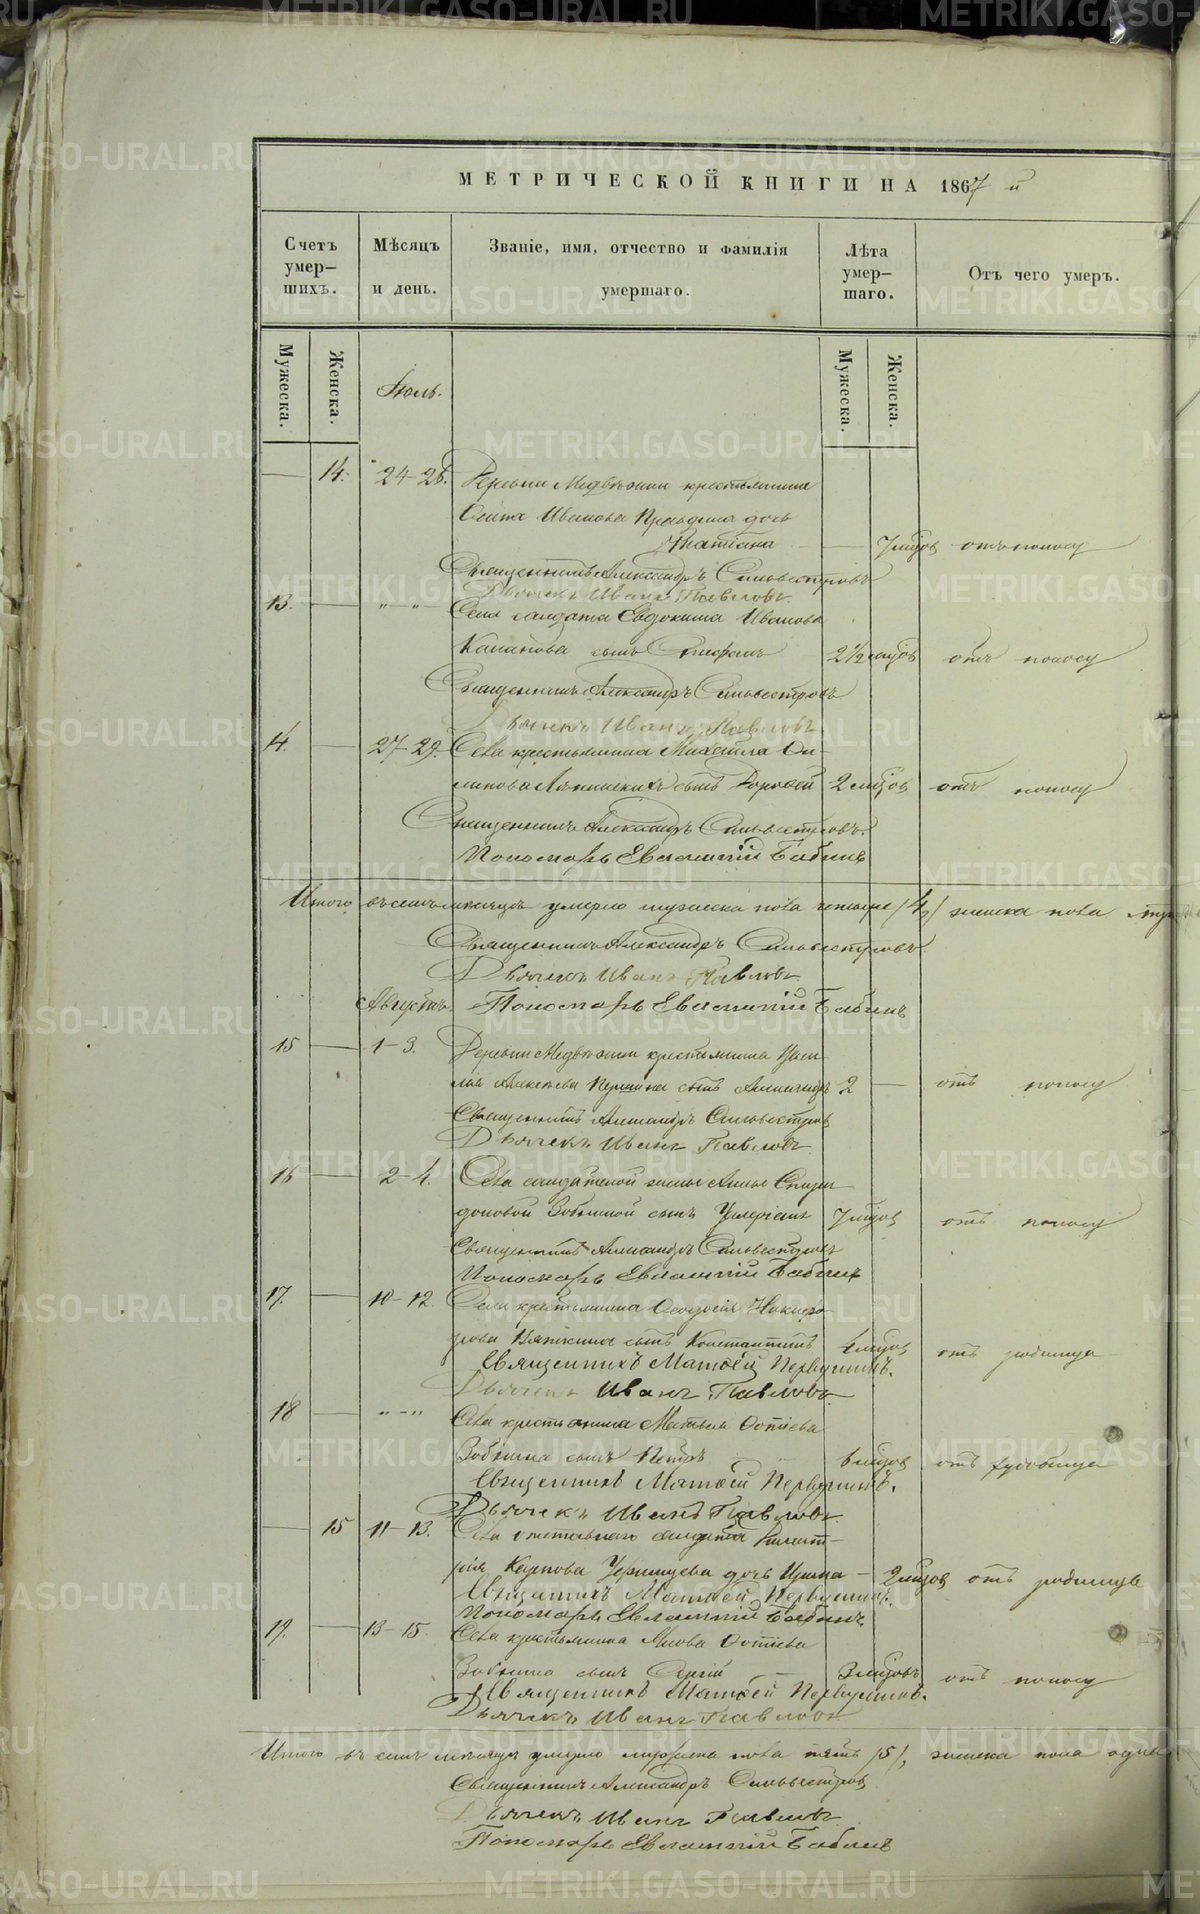 МЕТРИЧЕСКОЙ КНИГИ НА 1867 й
Счетъ умер-шихъ.
Мѣсяцъ и день.
Званіе, имя, отчество и фамилія умершаго.
Лѣта умер-шаго.
Отъ чего умеръ.
Мужеска.
Женска.
Мужеска.
Женска.
Іюль.
14. 24-26. Деревни Медвѣжьи крестьянина
Ивановa дочь
Татіана 7 мѣсцов отъ поносу
Священникъ Александръ Сильвестровъ
Дьячекъ Иванъ Павловъ
13. " — " Села солдата Евдокима Иванова
сынъ Стефанъ 2 1/2 мѣсцов отъ поносу
Священникъ Александръ Сильвестровъ
Дьячекъ Иванъ Павловъ
14. 27-29. Села крестьянина Михаила
сынъ 2 мѣсцов отъ поносу
Священникъ Александръ Сильвестровъ.
Пономарь Евлампій Бабинъ
Итого въ семъ месяцѣ умерло мужеска пола четыре /4/ женска пола
Священникъ Александръ Сильвестровъ
Дьячекъ Иванъ Павловъ
Августъ. Пономарь Евлампій Бабинъ
15 1-3. Деревни Медвѣжьи крестьянина
сынъ Александръ 2 отъ поносу
Священникъ Александръ Сильвестровъ
Дьячекъ Иванъ Павловъ
16 2-4. Села солдатской жены Анны Спири-
доновой Зобниной сынъ Валеріанъ 7 мѣсцов отъ поносу
Священникъ Александръ Сильвестровъ
Пономарь Евлампій Бабинъ
17. 10-12. Села крестьянина Никифо-
рова сынъ Константинъ мѣсцов отъ родимца
Священникъ Матѳей Первушинъ.
Дьячекъ Иванъ Павловъ
18 " — " Села крестьянина Матвѣя Фотіева
Зобнина сынъ Петръ мѣсцов отъ родимца
Священникъ Матѳей Первушинъ.
Дьячекъ Иванъ Павловъ.
15 11-13. Села отставнаго солдата
Карпова дочь Ирина 2 мѣсцов отъ родимца
Священникъ Матѳей Первушинъ.
Пономарь Евлампій Бабинъ
19. 13-15. Села крестьянина Якова Фотіева
Зобнина сынъ Сергій 3 мѣсцовъ отъ поносу
Священникъ Матѳей Первушинъ.
Дьячекъ Иванъ Павловъ
Итого въ семъ месяцѣ умерло мужеска пола пять /5/, женска пола одна
Священникъ Александръ Сильвестровъ
Дьячекъ Иванъ Павловъ
Пономарь Евлампій Бабинъ
METRIKI.GASO-URAL.RU